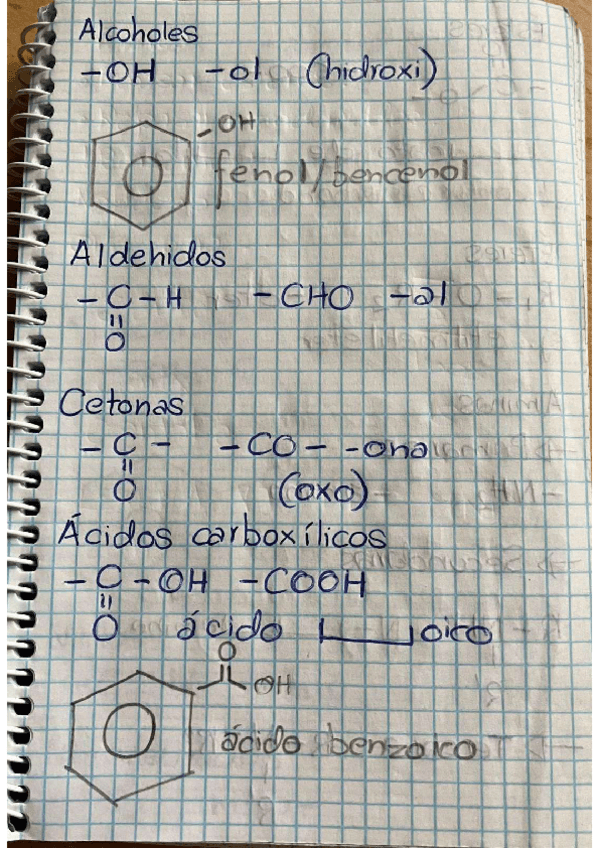 Alcoholes
-OH -ol (hidroxi)
-OH
fenol/bencenol
Aldehidos
-C-H -CHO -al
=
O
Cetonas
-C- -CO- -ona
=
O (oxo)
Ácidos carboxílicos
-C-OH -COOH
=
O ácido oico
O
OH
ácido benzoico